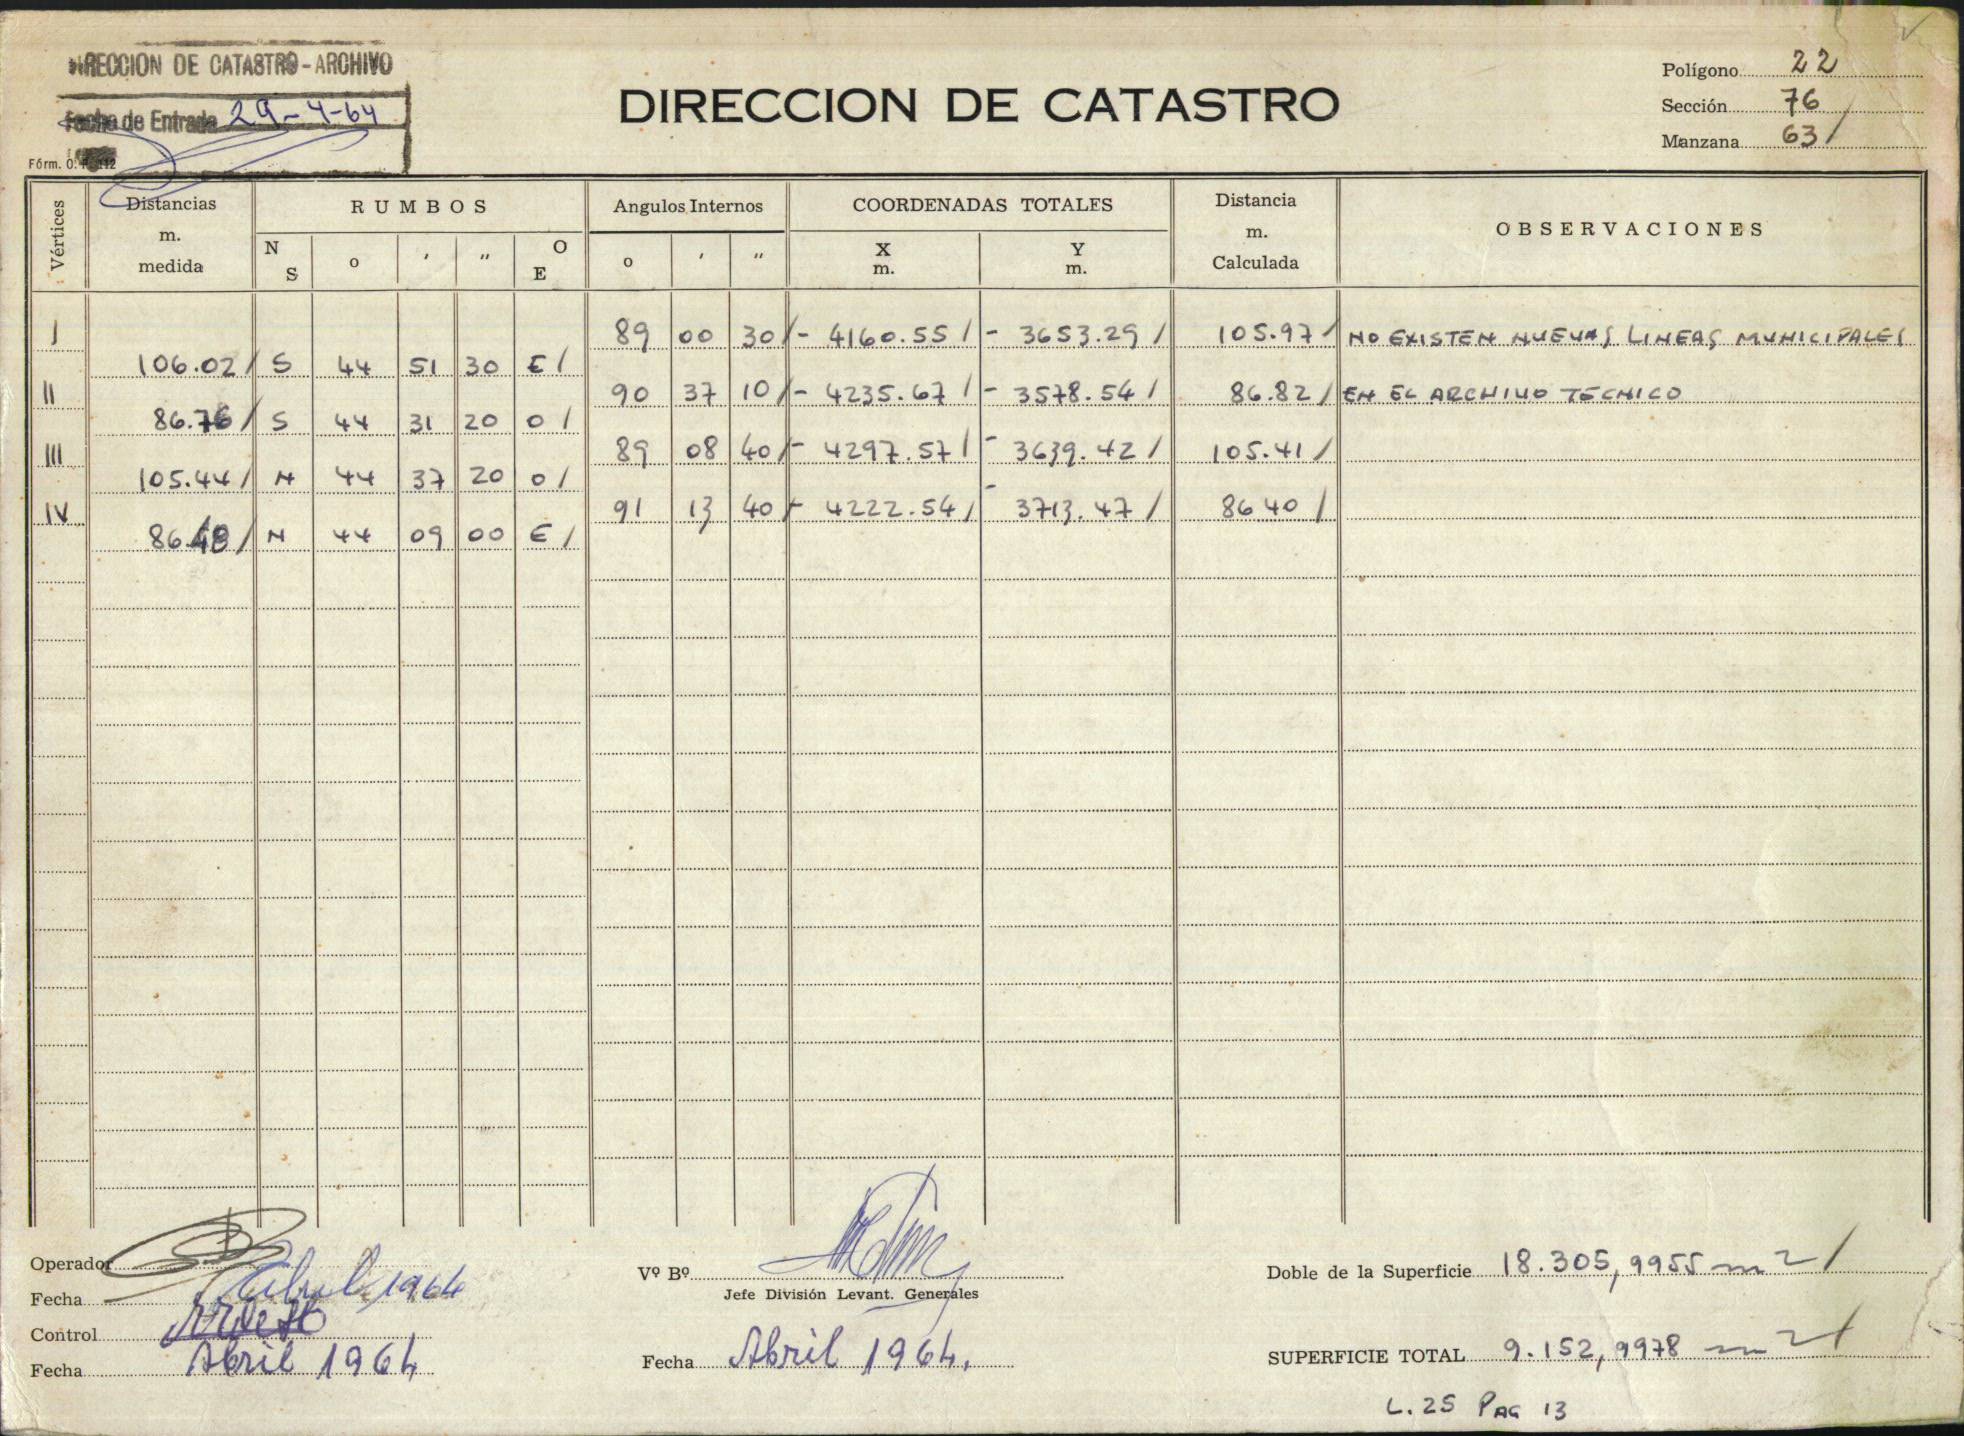 DIRECCION DE CATASTRO - ARCHIVO
Fecha de Entrada 29-4-64
Fórm. O. P. 112
DIRECCION DE CATASTRO
Polígono 22
Sección 76
Manzana 63 /
Vértices
Distancias m. medida
RUMBOS
Angulos Internos
COORDENADAS TOTALES
Distancia m. Calculada
OBSERVACIONES
N S ° ' " O E ° ' " X m. Y m.
I 89 00 30 / - 4160.55 / - 3653.29 / 105.97 / NO EXISTEN NUEVAS LINEAS MUNICIPALES
106.02 / S 44 51 30 E /
II 90 37 10 / - 4235.67 / - 3578.54 / 86.82 / EN EL ARCHIVO TECNICO
86.76 / S 44 31 20 O /
III 89 08 40 / - 4297.57 / - 3639.42 / 105.41 /
105.44 / N 44 37 20 O /
IV 91 13 40 / - 4222.54 / - 3713.47 / 86.40 /
86.48 / N 44 09 00 E /
Operador
Fecha Abril 1964
Control
Fecha Abril 1964
Vº Bº
Jefe División Levant. Generales
Fecha Abril 1964.
Doble de la Superficie 18.305,9955 m2 /
SUPERFICIE TOTAL 9.152,9978 m2 /
L. 25 PAG 13